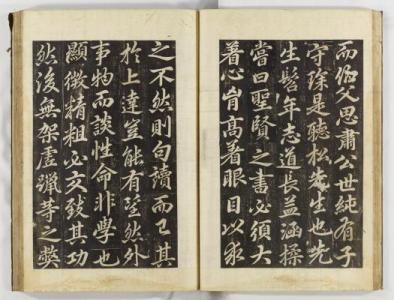 而伯父思肅公世純有子
守琛是聽松先生也先
生髫年志道長益涵操
嘗曰聖賢之書必須大
着心肯高着眼目以求
之不然則句讀而已其
於上達豈能有望然外
事物而談性命非學也
顯微精粗必交致其功
然後無架虛躐等之弊